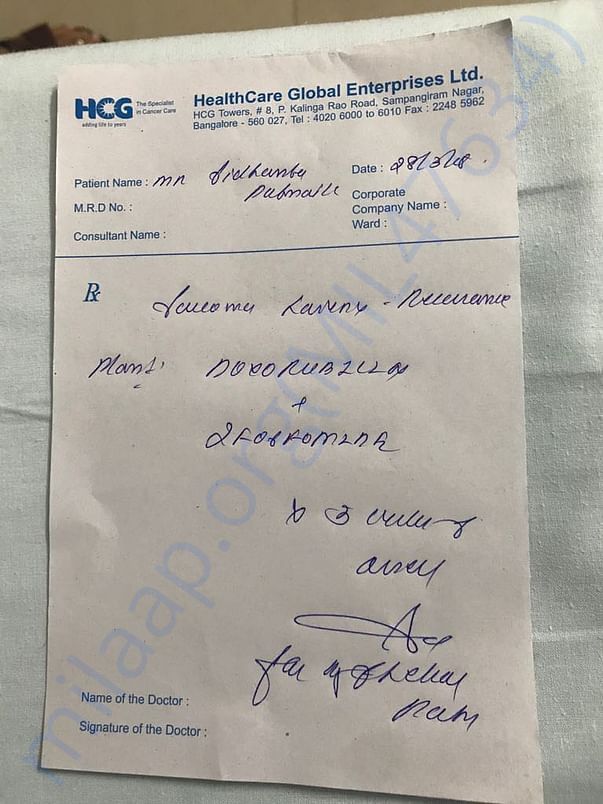 HCG The Specialist in Cancer Care
adding life to years
HealthCare Global Enterprises Ltd.
HCG Towers, # 8, P. Kalinga Rao Road, Sampangiram Nagar,
Bangalore - 560 027, Tel : 4020 6000 to 6010 Fax : 2248 5962
Patient Name : Mr
Date : 28/3/18
M.R.D No. :
Corporate
Company Name :
Consultant Name :
Ward :
Rx
Larynx -
Plan :
DOXORUBICIN
+
x 3
for
Name of the Doctor :
Signature of the Doctor :
milaap.org(MIL47634)